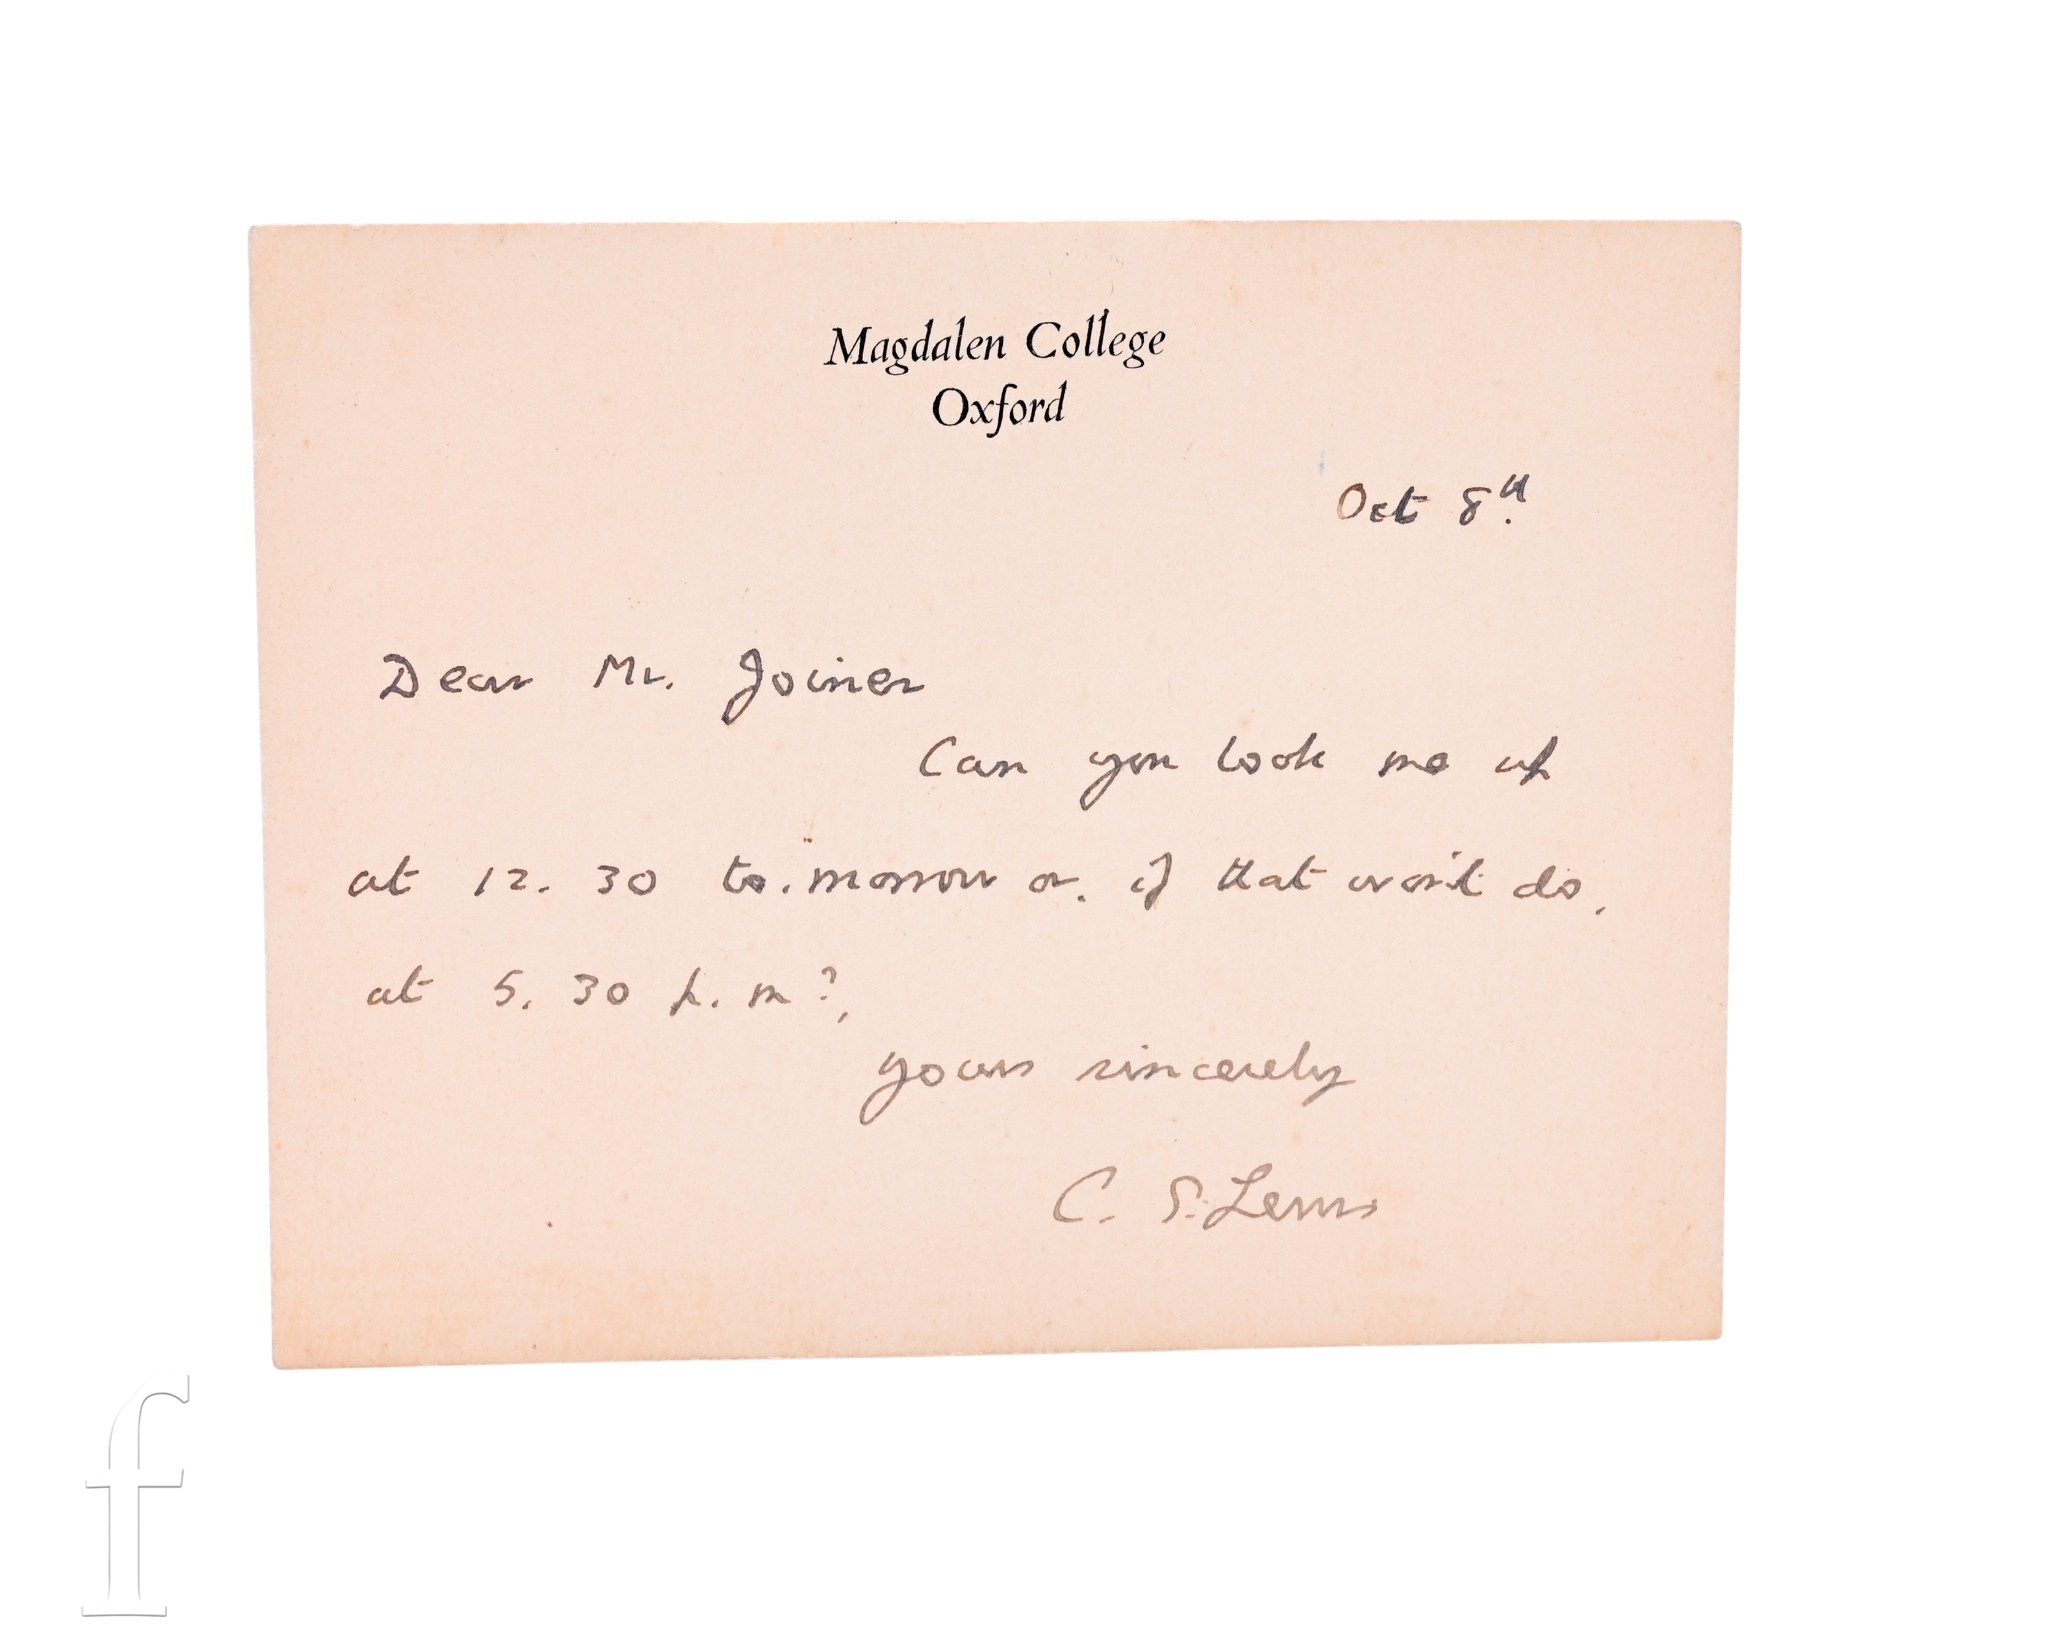 Magdalen College
Oxford
Oct 8th.
Dear Mr. Joiner
Can you look me up
at 12.30 to-morrow or, if that won't do,
at 5.30 p.m?,
yours sincerely
C. S. Lewis
f